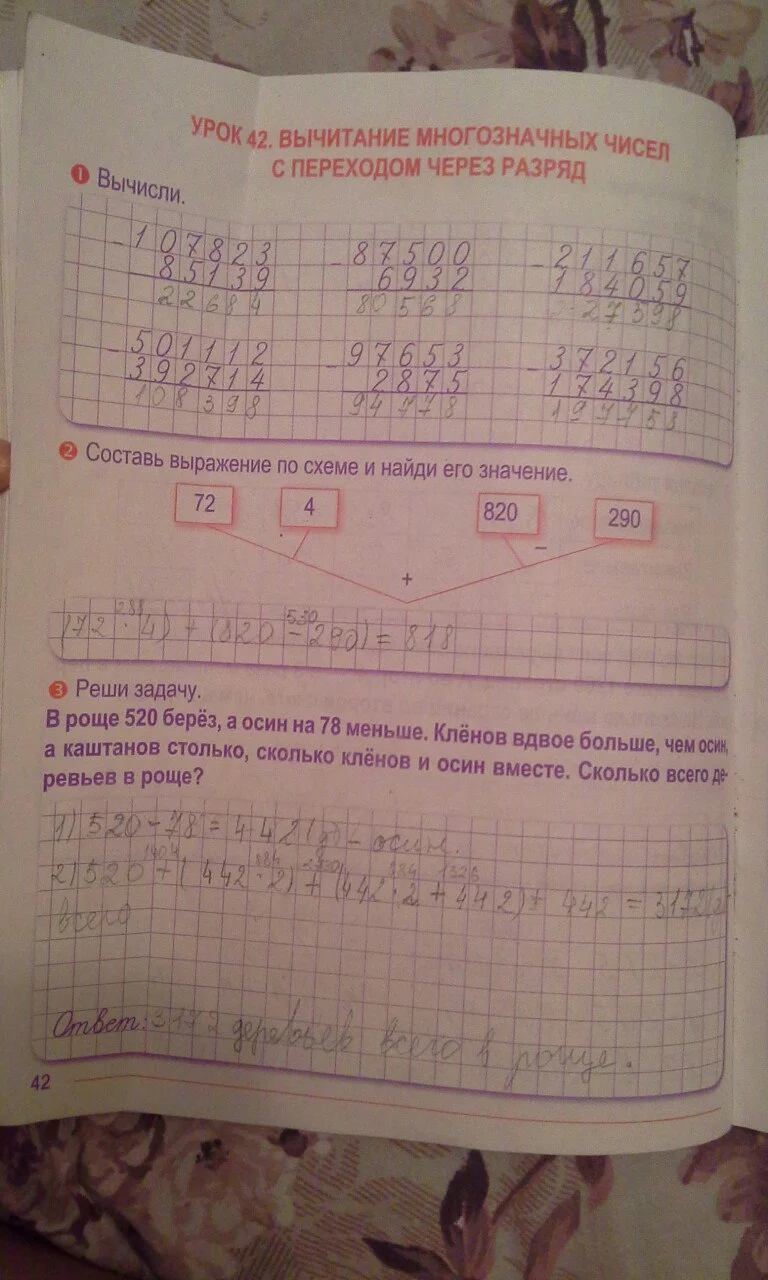 УРОК 42. ВЫЧИТАНИЕ МНОГОЗНАЧНЫХ ЧИСЕЛ
С ПЕРЕХОДОМ ЧЕРЕЗ РАЗРЯД
1 Вычисли.
- 107823 - 87500 - 211657
85139 6932 184059
22684 80568 27598
- 501112 - 97653 - 372156
392714 2875 174398
108398 94778 197758
2 Составь выражение по схеме и найди его значение.
72 4 820 290
· −
+
288 530
(72 · 4) + (820 − 290) = 818
3 Реши задачу.
В роще 520 берёз, а осин на 78 меньше. Клёнов вдвое больше, чем осин,
а каштанов столько, сколько клёнов и осин вместе. Сколько всего де-
ревьев в роще?
1) 520 − 78 = 442 (д) − осин.
1404 884 884 1326
2) 520 + (442 · 2) + (442 · 2 + 442) + 442 = 3172 (д)
всего
Ответ: 3172 деревьев всего в роще.
42